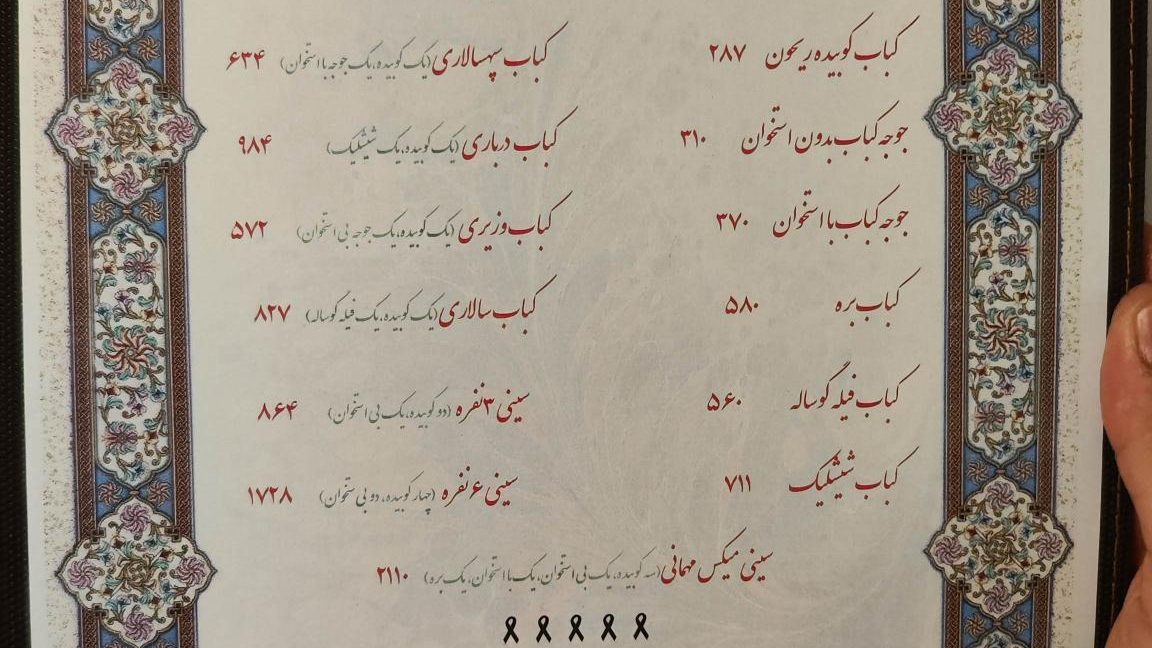 کباب کوبیده ریحون ۲۸۷
کباب سپهسالاری (یک کوبیده، یک جوجه با استخوان) ۶۳۴
جوجه کباب بدون استخوان ۳۱۰
کباب درباری (یک کوبیده، یک شیشلیک) ۹۸۴
جوجه کباب با استخوان ۳۷۰
کباب وزیری (یک کوبیده، یک جوجه بی استخوان) ۵۷۲
کباب بره ۵۸۰
کباب سالاری (یک کوبیده، یک فیله گوساله) ۸۲۷
کباب فیله گوساله ۵۶۰
سینی ۳ نفره (دو کوبیده، یک بی استخوان) ۸۶۴
کباب شیشلیک ۷۱۱
سینی ۶ نفره (چهار کوبیده، دو بی ستخوان) ۱۷۲۸
سینی میکس مهمانی (سه کوبیده، یک بی استخوان، یک با استخوان، یک بره) ۲۱۱۰